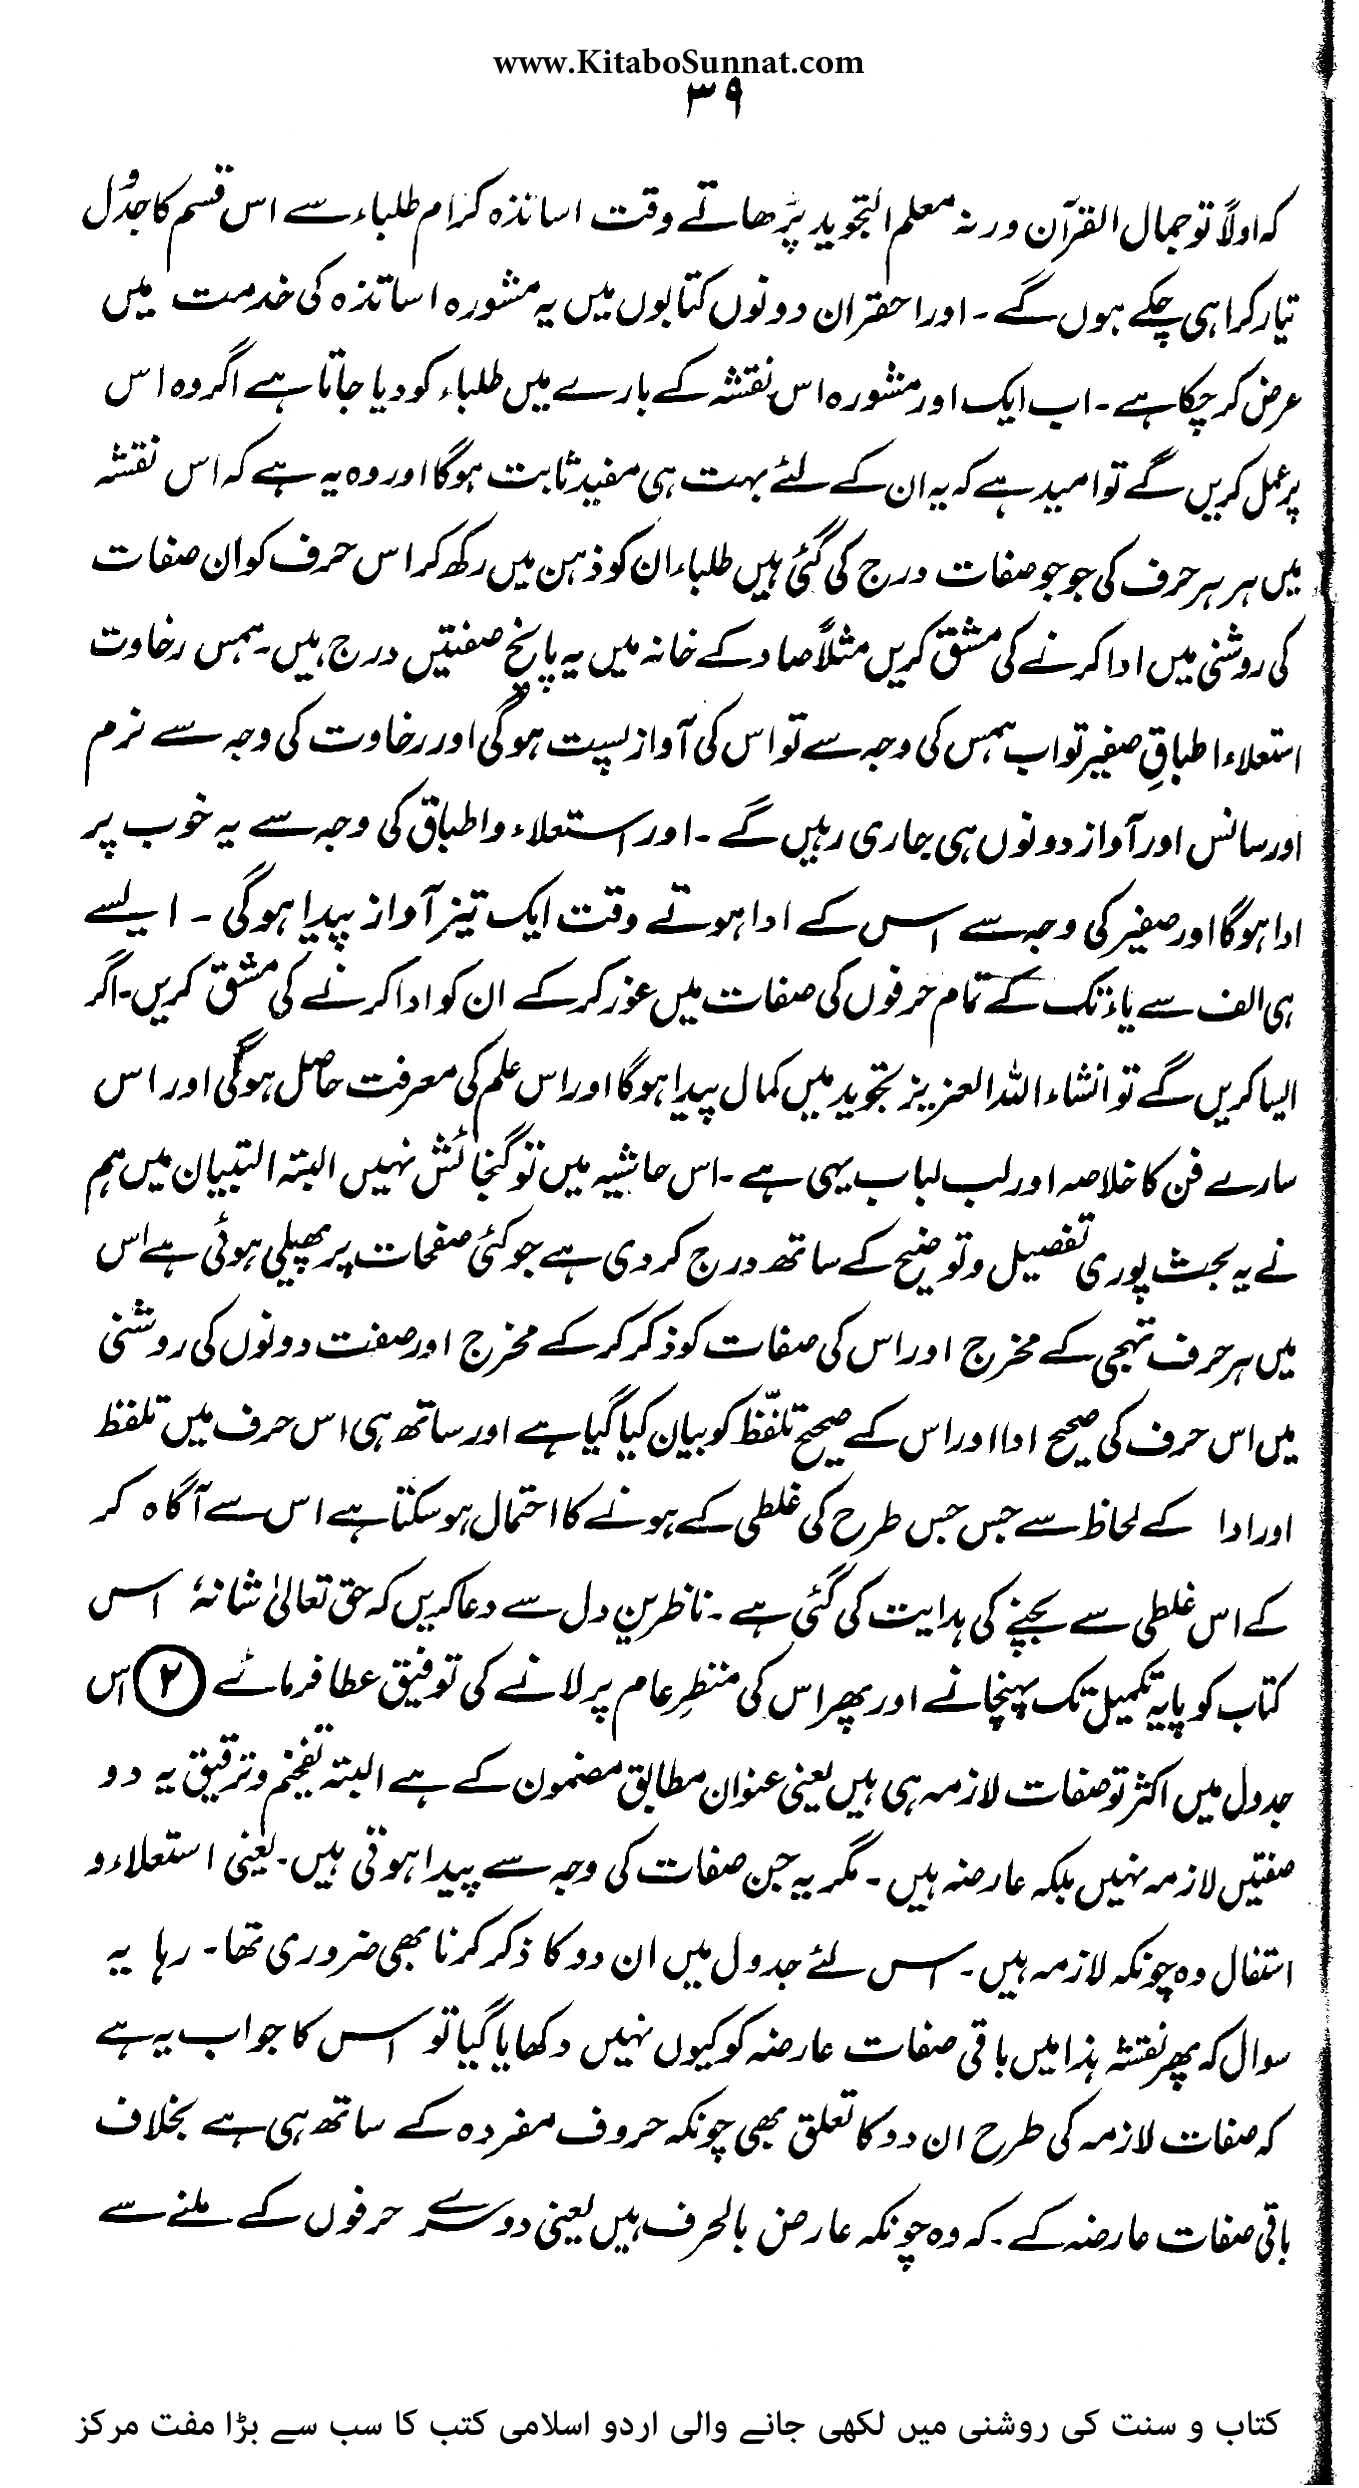 www.KitaboSunnat.com
۳۹
کہ اولاً تو جمال القرآن ورنہ معلم التجوید پڑھاتے وقت اساتذہ کرام طلباء سے اس قسم کا جدول
تیار کرا ہی چکے ہوں گے ۔ اور احقر ان دونوں کتابوں میں یہ مشورہ اساتذہ کی خدمت میں
عرض کر چکا ہے ۔ اب ایک اور مشورہ اس نقشہ کے بارے میں طلباء کو دیا جاتا ہے اگر وہ اس
پر عمل کریں گے تو امید ہے کہ یہ ان کے لئے بہت ہی مفید ثابت ہوگا اور وہ یہ ہے کہ اس نقشہ
میں ہر ہر حرف کی جو جو صفات درج کی گئی ہیں طلباء ان کو ذہن میں رکھ کر اس حرف کو ان صفات
کی روشنی میں ادا کرنے کی مشق کریں مثلاً صاد کے خانہ میں یہ پانچ صفتیں درج ہیں۔ ہمس رخاوت
استعلاء اطباقِ صفیر تو اب ہمس کی وجہ سے تو اس کی آواز پست ہوگی اور رخاوت کی وجہ سے نرم
اور سانس اور آواز دونوں ہی جاری رہیں گے ۔ اور استعلاء و اطباق کی وجہ سے یہ خوب پر
ادا ہوگا اور صفیر کی وجہ سے اس کے ادا ہوتے وقت ایک تیز آواز پیدا ہوگی ۔ ایسے
ہی الف سے یاء تک کے تمام حرفوں کی صفات میں غور کر کے ان کو ادا کرنے کی مشق کریں۔ اگر
ایسا کریں گے تو انشاء اللہ العزیز تجوید میں کمال پیدا ہوگا اور اس علم کی معرفت حاصل ہوگی اور اس
سارے فن کا خلاصہ اور لب لباب یہی ہے ۔ اس حاشیہ میں تو گنجائش نہیں البتہ التبیان میں ہم
نے یہ بحث پوری تفصیل و توضیح کے ساتھ درج کر دی ہے جو کئی صفحات پر پھیلی ہوئی ہے اس
میں ہر حرف تہجی کے مخرج اور اس کی صفات کو ذکر کر کے مخرج اور صفت دونوں کی روشنی
میں اس حرف کی صحیح ادا اور اس کے صحیح تلفّظ کو بیان کیا گیا ہے اور ساتھ ہی اس حرف میں تلفظ
اور ادا کے لحاظ سے جس جس طرح کی غلطی کے ہونے کا احتمال ہو سکتا ہے اس سے آگاہ کر
کے اس غلطی سے بچنے کی ہدایت کی گئی ہے ۔ ناظرین دل سے دعا کریں کہ حق تعالیٰ شانہٗ اس
کتاب کو پایہ تکمیل تک پہنچانے اور پھر اس کی منظرِ عام پر لانے کی توفیق عطا فرمائے (۲) اس
جدول میں اکثر تو صفات لازمہ ہی ہیں یعنی عنوان مطابق مضمون کے ہے البتہ تفخیم و ترقیق یہ دو
صفتیں لازمہ نہیں بلکہ عارضہ ہیں ۔ مگر یہ جن صفات کی وجہ سے پیدا ہوتی ہیں۔ یعنی استعلاء و
استفال وہ چونکہ لازمہ ہیں ۔ اس لئے جدول میں ان دو کا ذکر کرنا بھی ضروری تھا۔ رہا یہ
سوال کہ پھر نقشہ ہذا میں باقی صفات عارضہ کو کیوں نہیں دکھایا گیا تو اس کا جواب یہ ہے
کہ صفات لازمہ کی طرح ان دو کا تعلق بھی چونکہ حروف مفردہ کے ساتھ ہی ہے بخلاف
باقی صفات عارضہ کے ۔ کہ وہ چونکہ عارض بالحرف ہیں یعنی دوسرے حرفوں کے ملنے سے
کتاب و سنت کی روشنی میں لکھی جانے والی اردو اسلامی کتب کا سب سے بڑا مفت مرکز